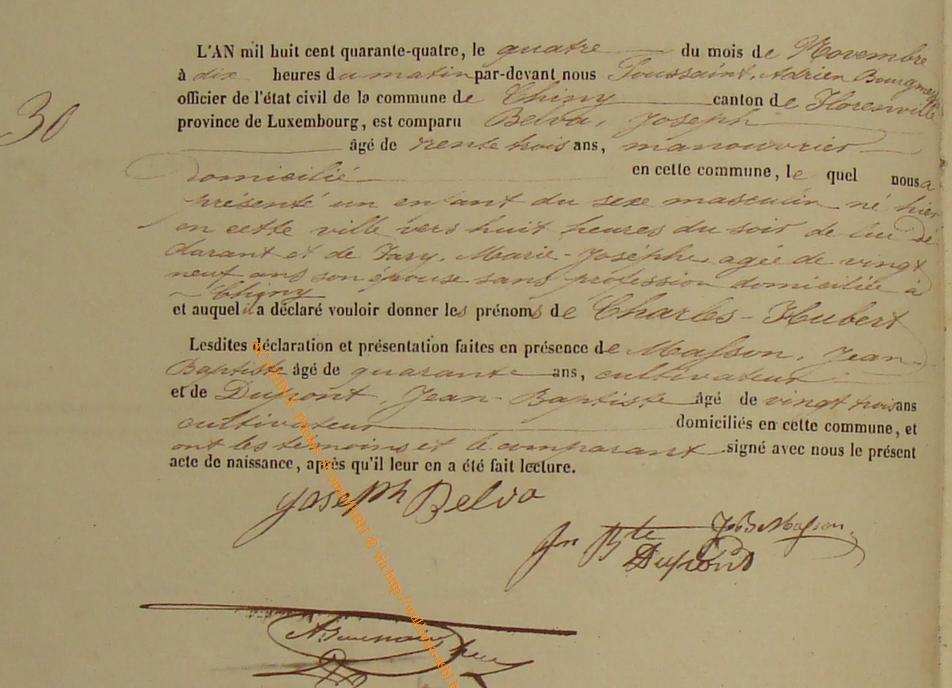 30
L'AN mil huit cent quarante-quatre, le quatre du mois de Novembre
à dix heures du matin par-devant nous Toussaint, Adrien Bourgmes
officier de l'état civil de la commune de Chiny canton de Florenville
province de Luxembourg, est comparu Belva, Joseph
âgé de trente trois ans, manouvrier
domicilié en cette commune, lequel nous a
présenté un enfant du sexe masculin né hier
en cette ville vers huit heures du soir de lui dé
clarant et de Jary, Marie-Josèphe agée de vingt
neuf ans son épouse sans profession domiciliée à
Chiny
et auquel il a déclaré vouloir donner les prénoms de Charles-Hubert
Lesdites déclaration et présentation faites en présence de Masson, Jean
Baptiste âgé de quarante ans, cultivateur
et de Dupont, Jean-Baptiste âgé de vingt trois ans
cultivateur domiciliés en cette commune, et
ont les témoins et le comparant signé avec nous le présent
acte de naissance, après qu'il leur en a été fait lecture.
Joseph Belva
JB Masson
Jn Bte
Dupont